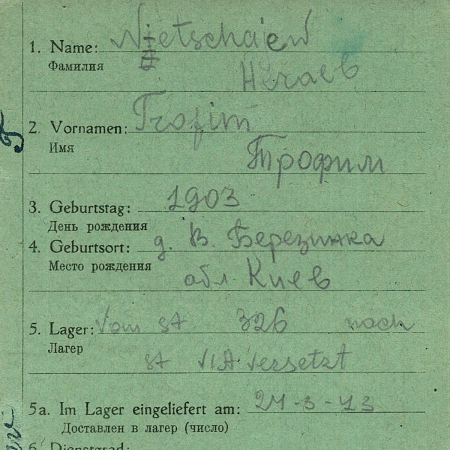 1. Name: Nietschaiew
Фамилия Нечаев
2. Vornamen: Trofim
Имя Трофим
3. Geburtstag: 1903
День рождения
4. Geburtsort: д. В. Березинка
Место рождения обл. Киев
5. Lager: Vom St 326 nach
Лагер St VI A versetzt
5a. Im Lager eingeliefert am: 21-3-43
Доставлен в лагер (число)
6. Dienstgrad: